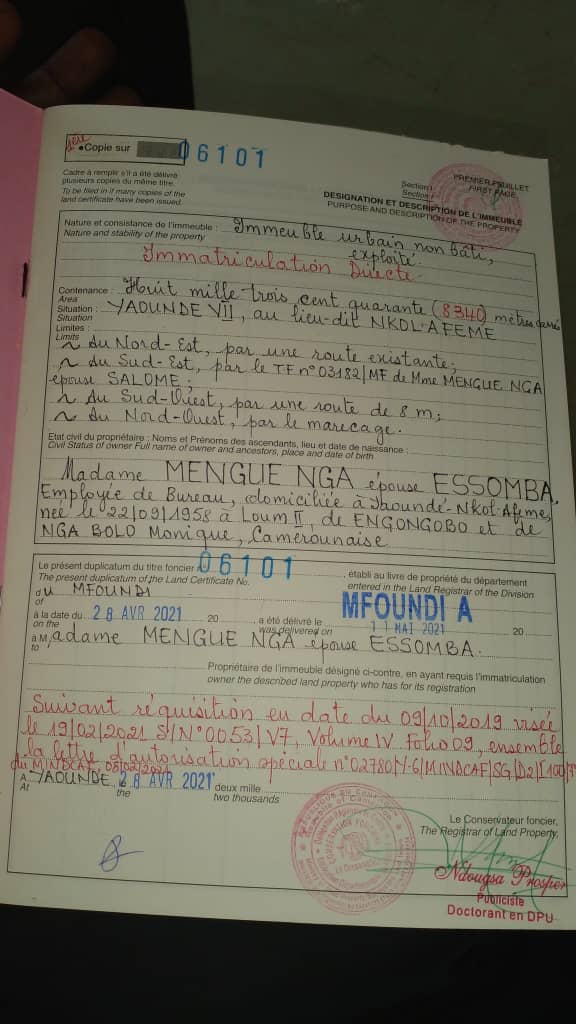 1ère
•Copie sur 06101
Cadre à remplir s'il a été délivré
plusieurs copies du même titre.
To be filled in if many copies of the
land certificate have been issued.
PREMIER FEUILLET
FIRST PAGE
Section I
Section I
DESIGNATION ET DESCRIPTION DE L'IMMEUBLE
PURPOSE AND DESCRIPTION OF THE PROPERTY
Nature et consistance de l'immeuble : Immeuble urbain non bâti,
Nature and stability of the property exploité.
Immatriculation Directe.
Contenance : Huit mille trois cent quarante (8340) mètres carrés
Area
Situation : YAOUNDE VII, au lieu-dit NKOL-AFEME
Situation
Limites :
Limits
~ du Nord-Est, par une route existante;
~ du Sud-Est, par le TF n° 03182/MF de Mme MENGUE NGA
épouse SALOME;
~ du Sud-Ouest, par une route de 8 m;
~ du Nord-Ouest, par le marecage.
Etat civil du propriétaire : Noms et Prénoms des ascendants, lieu et date de naissance :
Civil Status of owner Full name of owner and ancestors, place and date of birth
Madame MENGUE NGA épouse ESSOMBA,
Employée de Bureau, domiciliée à Yaoundé-Nkol-Afeme,
née le 22/09/1958 à Loum II, de ENGONGOBO et de
NGA BOLO Monique, Camerounaise
Le présent duplicatum du titre foncier 06101, établi au livre de propriété du département
The present duplicatum of the Land Certificate No. entered in the Land Registrar of the Division
du MFOUNDI
of
MFOUNDI A
à la date du 28 AVR 2021 20 , a été délivré le 11 MAI 2021 20
on the was delivered on
à Madame MENGUE NGA épouse ESSOMBA.
to
Propriétaire de l'immeuble désigné ci-contre, en ayant requis l'immatriculation
owner the described land property who has for its registration
Suivant réquisition en date du 09/10/2019 visée
le 19/02/2021 S/N° 0053/V7, Volume IV Folio 09, ensemble
la lettre d'autorisation spéciale n° 02780/Y-6/MINDCAF/SG/D2/I100/
du MINDCAF, 05/02/2021
A YAOUNDE 28 AVR 2021 deux mille
At the two thousands
Le Conservateur foncier,
The Registrar of Land Property,
Ndougsa Prosper
Publiciste
Doctorant en DPU